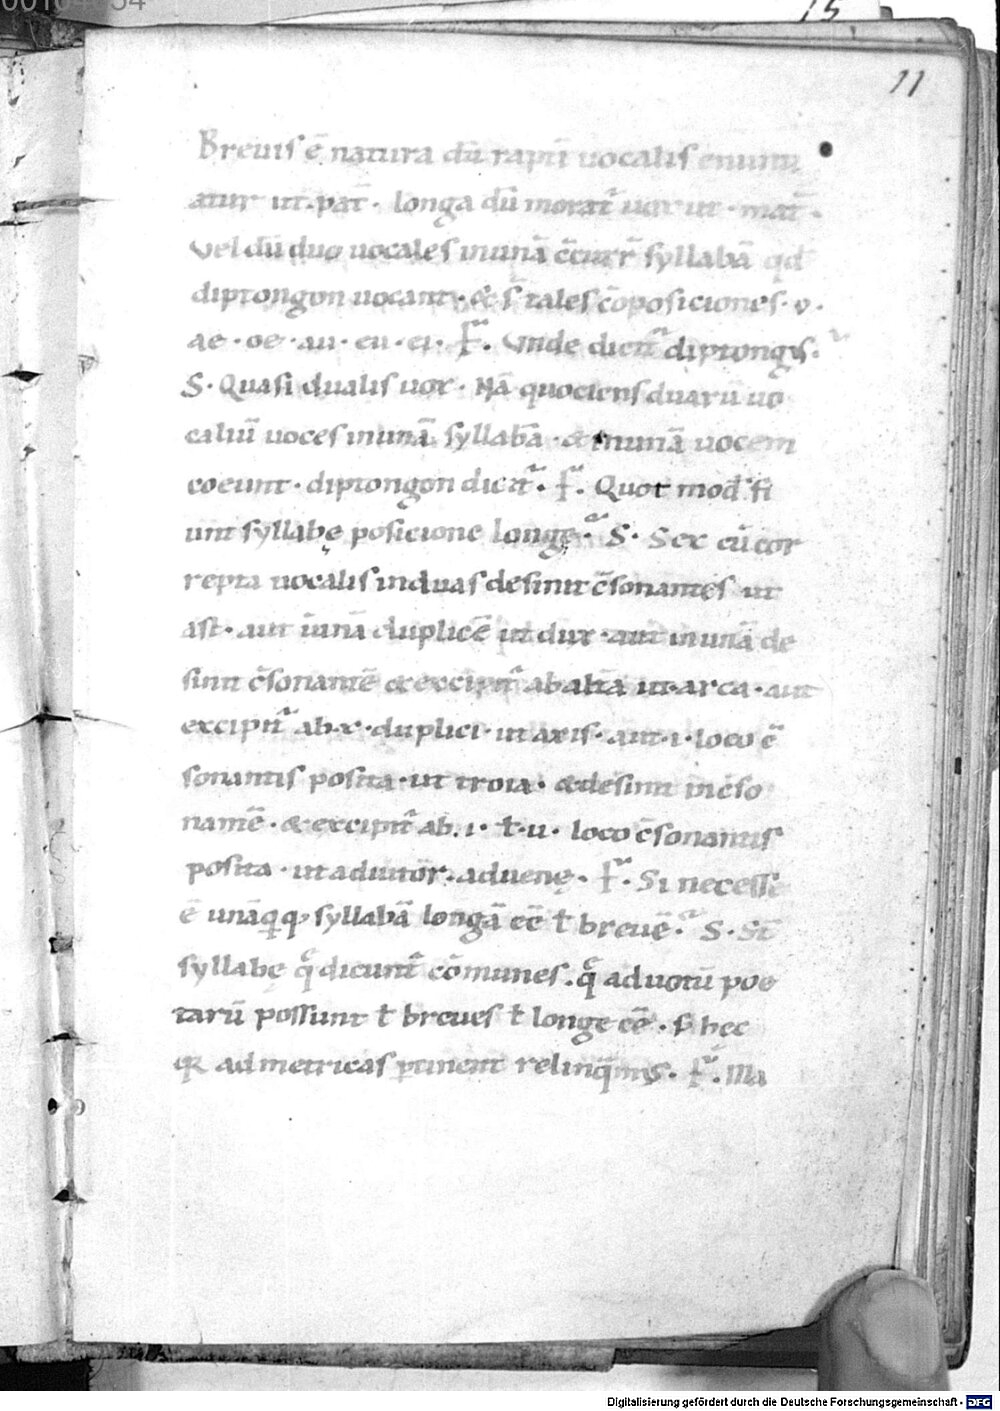 00104054
15
11
Breuis ē natura dū raptī uocalis enunti
atur ut pat̄. longa dū morat̄ uox ut mat̄.
Vel dū duo uocales inunā c̄curr̄ syllabā qd̄
diptongon uocant. & s̄ tales c̄posiciones. v.
ae. oe. au. eu. ei. F. Vnde dicit̄ diptongus.
S. Quasi dualis uox. Nā quociens duarū uo
caliū uoces inunā syllabā & inunā uocem
coeunt. diptongon dicit̄. F. Quot mod fi
unt syllabę posicione longę. S. Sex cū cor
repta uocalis induas desinit c̄sonantes ut
ast. aut īunā duplicē ut dux. aut inunā de
sinit c̄sonantē & excipit̄ ab altā ut arca. aut
excipit̄ ab. x. duplici. ut axis. aut. i. loco c̄
sonantis posita. ut troia. & desinit inc̄so
nantē. & excipit̄ ab. i. ł. u. loco c̄sonantis
posita. ut adiutor. aduenę. F. Si necesse
ē unāqq syllabā longā eē ł breuē. S. St̄
syllabę q̄ dicunt̄ cōmunes. q̄ aduotū poe
tarū possunt ł breues ł longe eē. s; hec
qr ad metricas ptinent relinq̄mus. F. Ma
Digitalisierung gefördert durch die Deutsche Forschungsgemeinschaft - DFG